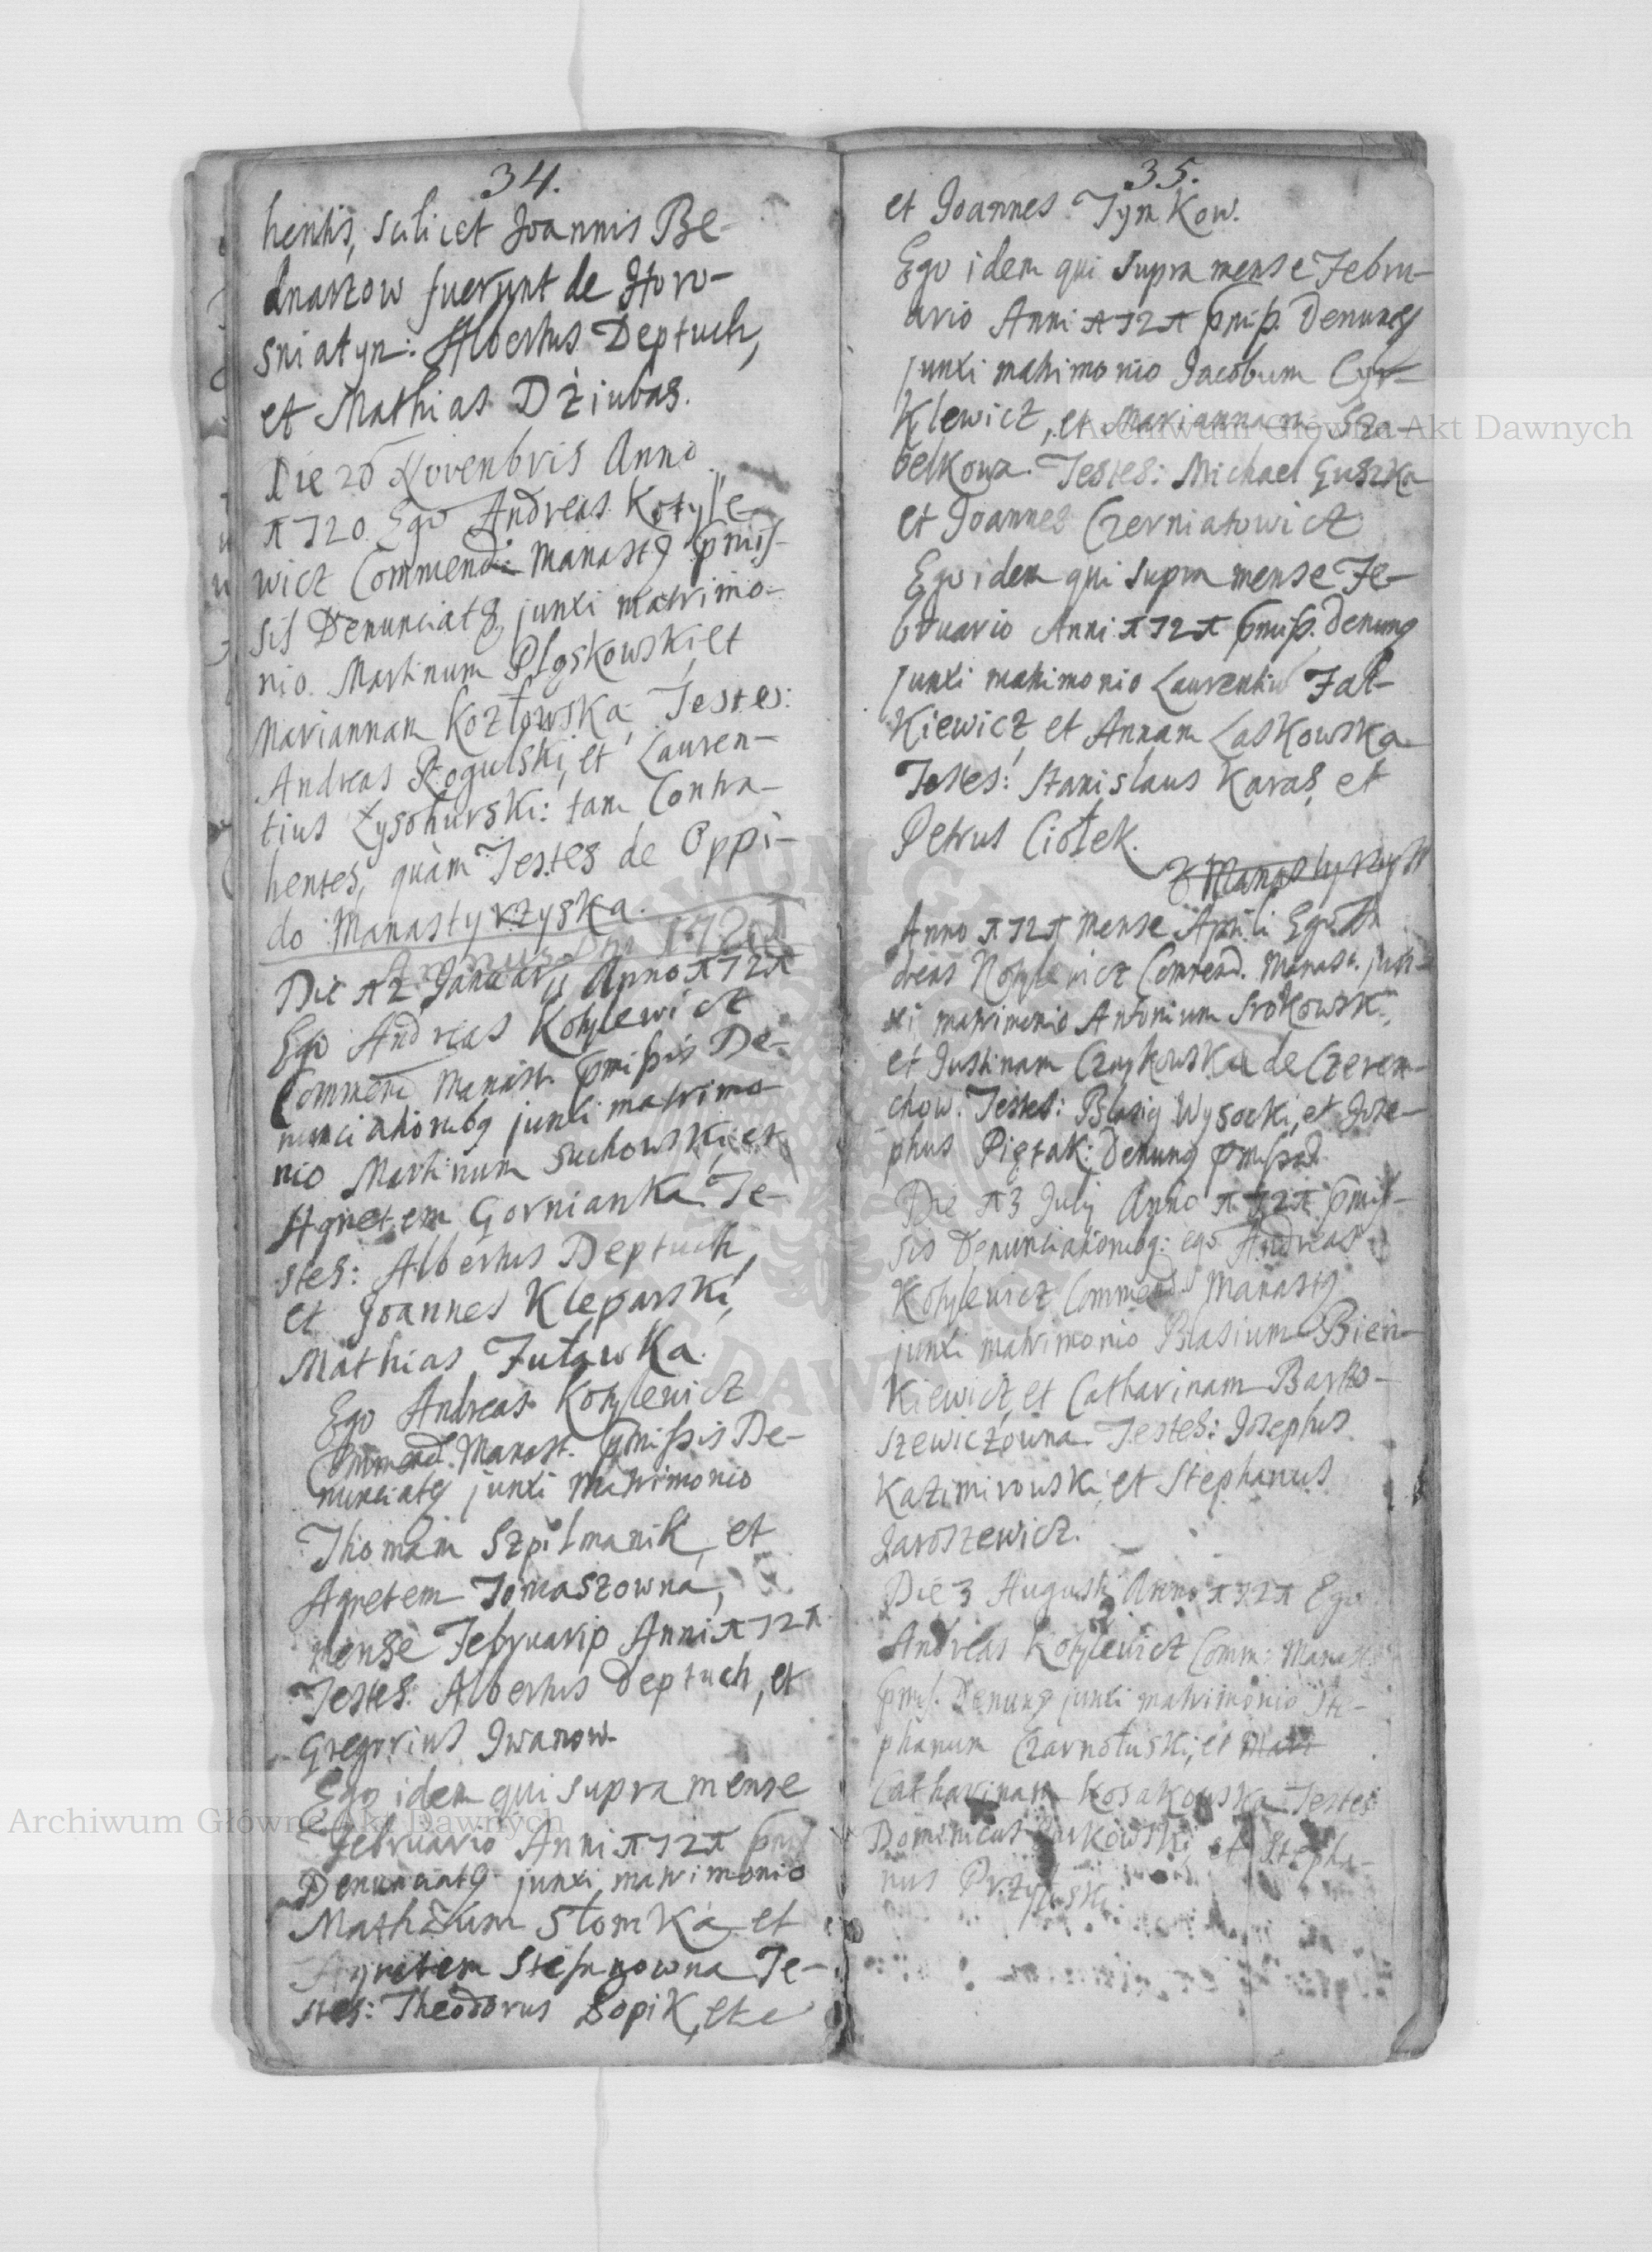 34.
hentis, scilicet Joannis Be-
dnarzow fuerunt de Horo-
sniatyn: Albertus Deptuch,
et Mathias Dziubas.
Die 26 Novenbris Anno
1720. Ego Andreas Kotyle-
wicz Commend: Manastꝯ pmis-
sis Denunciatꝯ junxi matrimo-
nio Martinum Ploskowski, et
Mariannam Kozłowska, Testes:
Andreas Rogulski, et Lauren-
tius Łysohurski: tam Contra-
hentes, quàm Testes de Oppi-
do Manastyrzyska.
Annus Dni 1721
Die 12 Januarij Anno 1721
Ego Andreas Kotylewicz
Commend Manast. pmissis De-
nunciationibꝯ junxi matrimo-
nio Martinum Suchowski, et
Agnetem Gornianka. Te-
stes: Albertus Deptuch,
et Joannes Kleparski,
Mathias Futawka.
Ego Andreas Kotylewicz
Commend. Manast. pmissis De-
nunciatꝯ junxi Matrimonio
Thomam Szpilmanik, et
Agnetem Tomaszowna,
mense Februario Anni 1721
Testes: Albertus Deptuch, et
Gregorius Iwanow.
Ego idem qui supra mense
Februario Anni 1721 pmis
Denunciatꝯ junxi matrimonio
Mathæum Słomka et
Agnetem Stefanowna Te-
stes: Theodorus Sopik, et
35.
et Joannes Tymkow.
Ego idem qui supra mense Febru-
ario Anni 1721 pmiss. Denunꝯ
junxi matrimonio Jacobum Cyr-
klewicz, et Mariannam Sza-
belkowa. Testes: Michael Guszka
et Joannes Czerniatowicz
Ego idem qui supra mense Fe-
bruario Anni 1721 pmiss. Denunꝯ
junxi matrimonio Laurentiu Fał-
kiewicz et Annam Laskowska
Testes: Stanislaus Karas, et
Petrus Ciołek.
Z Manastyrzysk
Anno 1721 Mense Aprili Ego An
dreas Kotylewicz Commend. Manast. jun-
xi matrimonio Antonium Srokowski,
et Justinam Czaykowska de Czerem-
chow. Testes: Blasiꝯ Wysocki, et Jose-
phus Piętak: Denunꝯ pmissis
Die 13 Julij Anno 1721 pmis-
sis Denunciationibꝯ: ego Andreas
Kotylewicz Commend. Manastꝯ
junxi matrimonio Blasium Bien-
kiewicz, et Catharinam Barto-
szewiczowna. Testes: Josephus
Kazimirowski, et Stephanus
Jaroszewicz.
Die 3 Augusti Anno 1721 Ego
Andreas Kotylewicz Comm: Manast:
pmis. Denunꝯ junxi matrimonio Ste-
phanum Czarnołuski, et Mari
Catharinam Kosakowska Testes
Dominicus et Stepha-
nus Przyłuski.
Archiwum Główne Akt Dawnych
Archiwum Główne Akt Dawnych